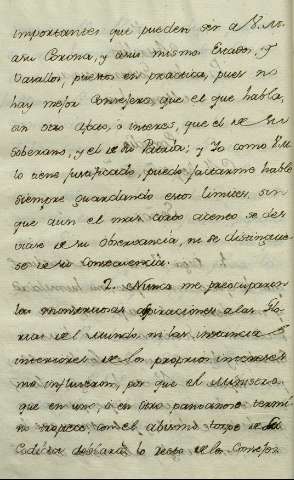 importantes que pueden ser a V. M.
a su Corona, y a sus mismos Estados, y
Vasallos, puestos en practica, pues no
hay mejor Consejero, que el que habla,
sin otro afecto, ò interes, que el de su
Soberano, y el de su Patria; y Yo como V. M.
lo tiene justificado, puedo
siempre guardando estos limites, sin
que aun el mas corto acento se des
viase de su Observancia, ni se distinguie
se de su Consecuencia.
2. Nunca me preocuparon
las aspiraciones a las Glo
rias del Mundo, ni las instancias
interiores de los propios intereses
me por que el Ministro,
que en uno, ò en otro termi
no tropiece con el abismo torpe de la
Codicia, lo recto de los Consejos